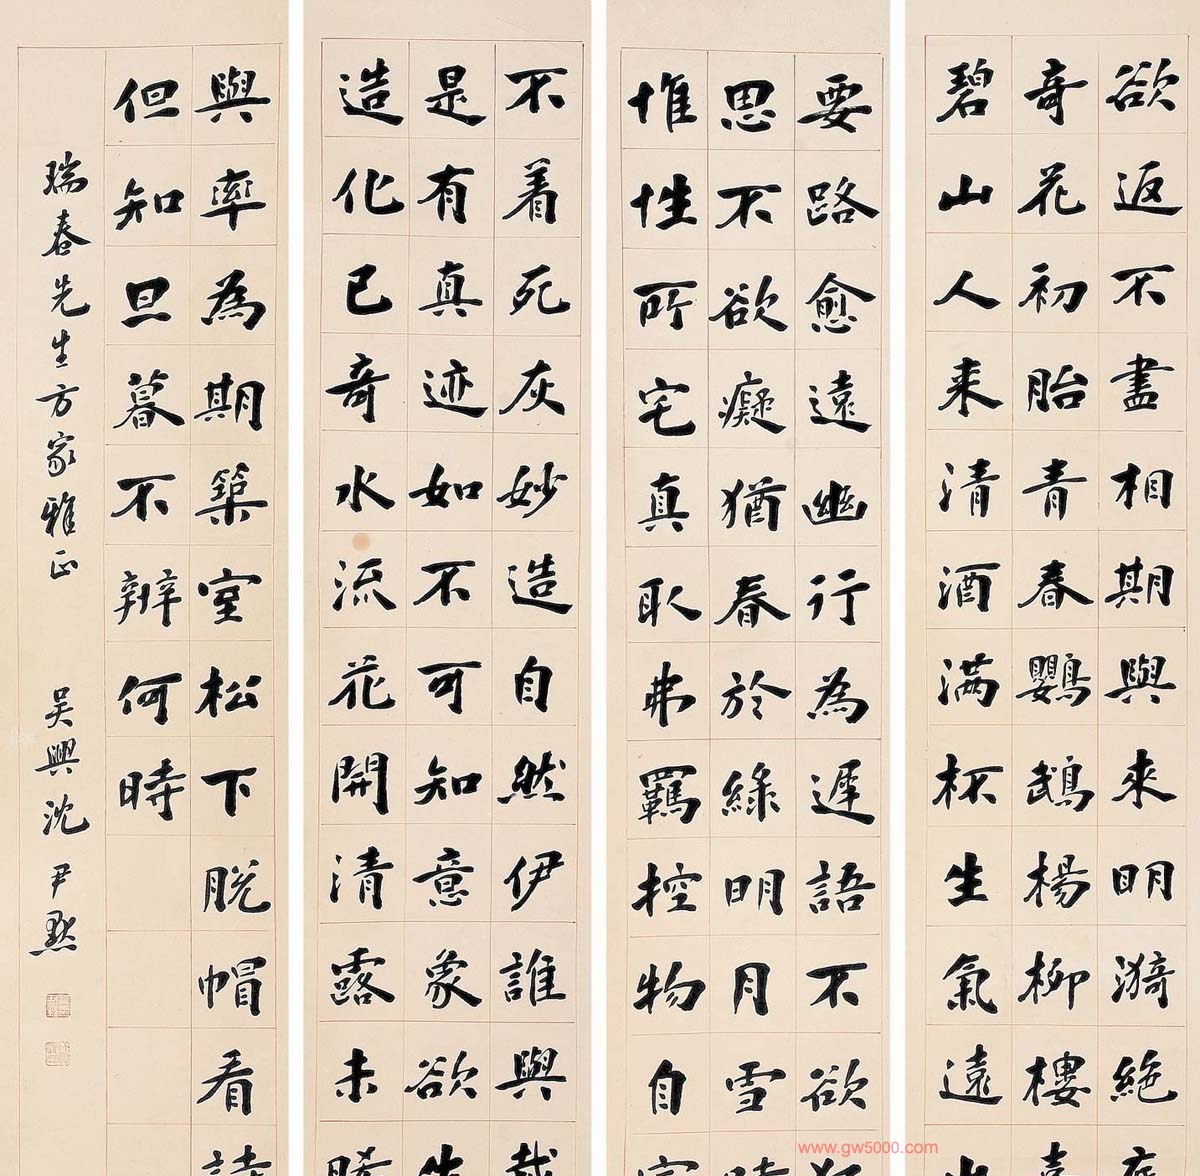 欲返不盡相期與來明漪絕
奇花初胎青春鸚鵡楊柳樓
碧山人来清酒滿杯生氣遠
要路愈遠幽行為遲語不欲
思不欲癡猶春於綠明月雪
惟性所宅真取弗羈控物自
不着死灰妙造自然伊誰與
是有真迹如不可知意象欲
造化已奇水流花開清露未
與率為期築室松下脫帽看
但知旦暮不辨何時
瑞春先生方家雅正 吳興沈尹默
www.gw5000.com